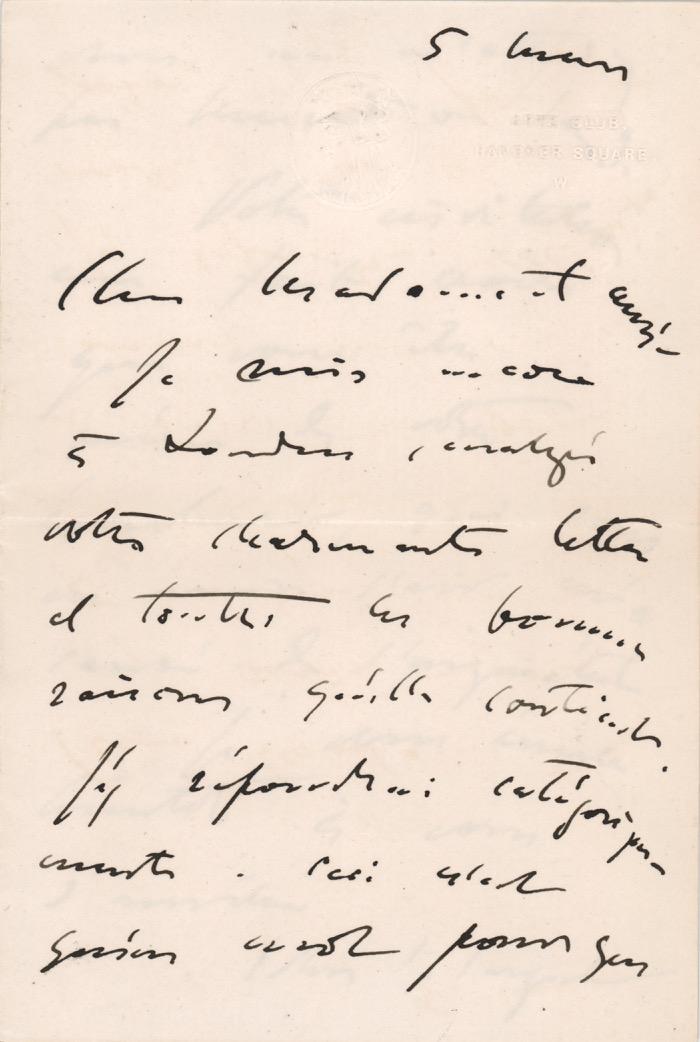 5 mars
CLUB
HANOVER SQUARE
W
Chère Madame et amie
Je suis encore
à Londres, malgré
votre charmante lettre
et toutes les bonnes
raisons qu'elle contient.
J'y répondrai catégorique-
ment. Ceci n'est
qu'un mot pour que